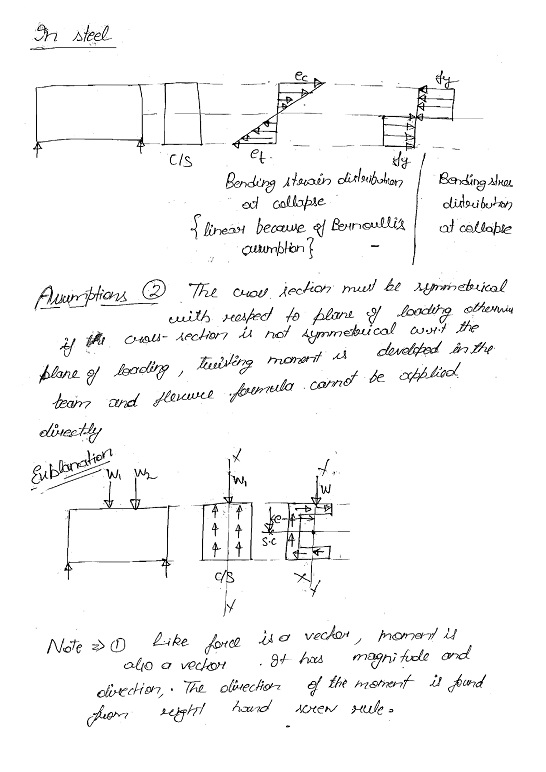 In steel
ec
fy
C/S
et
fy
Bending strain distribution
at collapse
{linear because of Bernoulli's
assumption}
Bending stress
distribution
at collapse
Assumptions ② The cross section must be symmetrical
with respect to plane of loading otherwise
if the cross-section is not symmetrical w.r.t the
plane of loading, twisting moment is developed in the
beam and flexure formula cannot be applied
directly
Explanation
W1 W2
X
W1
Y
W
e
S.C
C/S
X
Y
Y
Note ⇒ ① Like force is a vector, moment is
also a vector. It has magnitude and
direction. The direction of the moment is found
from right hand screw rule.